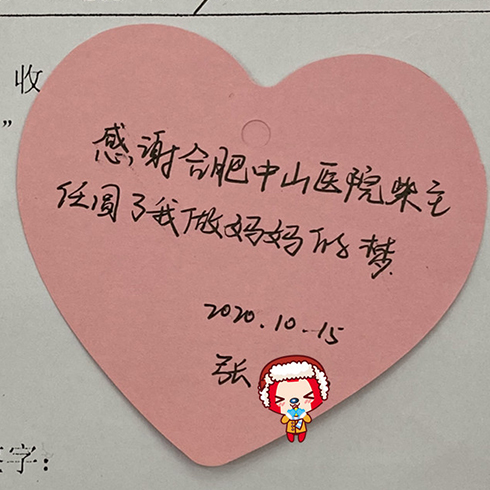 收
”
感谢合肥中山医院柴主
任圆了我做妈妈的梦
2020.10.15
张
字: